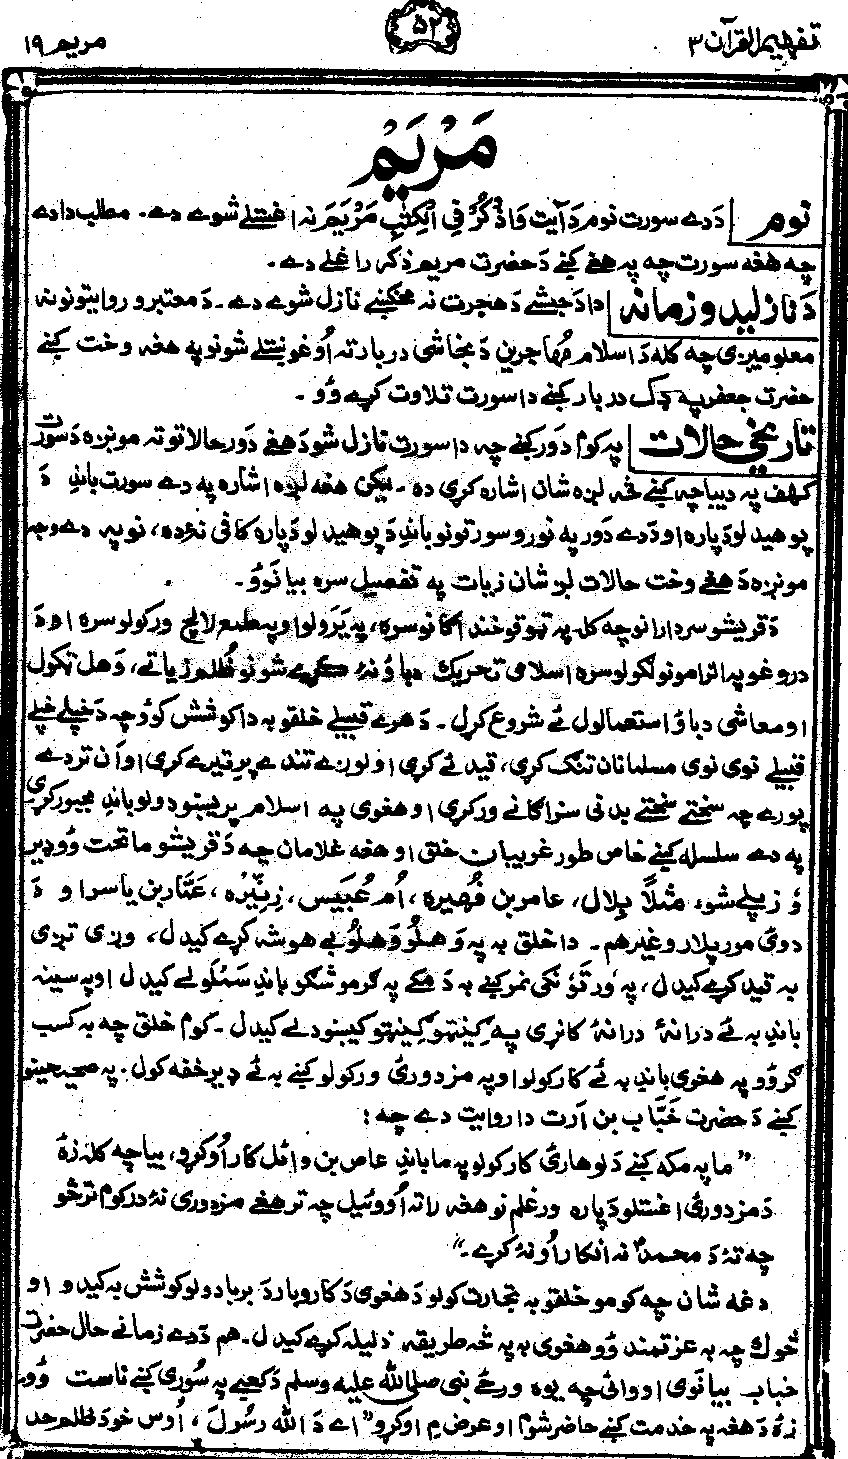 تفهیم القرآن ۳
۵۲
مریم ۱۹
مَرْیَم
نوم
دَدے سورت نوم دَ آیت وَاذْکُرْ فِی الْکِتٰبِ مَرْیَمَ نہ اغستلے شوے دے۔ مطلب دادے
چہ هغه سورت چه په هغے کښے دَ حضرت مریم ذکر راغلے دے۔
دَ نازلیدو زمانه
دا دَ حبشے دَ هجرت نه مخکښے نازل شوے دے۔ دَ معتبرو روایتونونه
معلومیږی چه کله دَ اسلام مُهاجرین دَ نجاشی دربار ته اُوغوښتلے شو نو په هغه وخت کښے
حضرت جعفر په ډک دربار کښے دا سورت تلاوت کړے وُو۔
تاریخی حالات
په کوم دَور کښے چه دا سورت نازل شو دَ هغے دَور حالاتو ته مونږه دَ سورت
کهف په دیباچه کښے څه لږه شان اشاره کړی ده۔ لیکن هغه لږه اشاره په دے سورت باندِ دَ
پوهیدلو دَپاره او دَدے دَور په نورو سورتونو باندِ دَ پوهیدلو دَپاره کافی نۀ ده، نو په دے وجه
مونږه دَ هغے وخت حالات لږ شان زیات په تفصیل سره بیانوُو۔
دَ قریشو سردارانو چه کله په ټوقو خنداگانو سره، په یَرَولو او په طمع لالچ ورکولو سره او دَ
دروغو په الزامونو لګولو سره اسلامی تحریک دباؤ نۀ کړے شو نو ظلم زیاتے، وَهل ټکول
او معاشی دباؤ استعمالول ئے شروع کړل۔ دَ هرے قبیلے خلقو به دا کوشش کوؤ چه دَ خپلے خپلے
قبیلے نوی نوی مسلمانان تنګ کړی، قید ئے کړی او لوږے تندے پرِ تیرے کړی او آن تردے
پورے چه سختے سختے بدنی سزاگانے ورکړی او هغوی په اسلام پریښودلو باندِ مجبور کړی
په دے سلسله کښے خاص طور غریبان خلق او هغه غلامان چه دَ قریشو ماتحت وُو ډیر
وُ زپلے شو، مثلاً بِلال، عامر بن فُهَیره، اُم عُبَیس، زِنِّیْرَه، عَمّار بن یاسر او دَ
دوئ مور پلار وغیرهم۔ دا خلق به په وَهلُو وَهلُو بے هوشه کړے کیدل، وږی تږی
به قید کړے کیدل، په ... نمر کښے به دَ مکے په گرمو شګو باندِ سَملَولے کیدل او په سینه
باندِ به ئے درانۀ درانۀ کانړی په ګینټو ګینټو کیښودلے کیدل۔ کوم خلق چه به کسب
گروُو په هغوی باندِ به ئے کار کولو او په مزدورئ ورکولو کښے به ئے ډیر خفه کول۔ په صحیحینو
کښے دَ حضرت خَبّاب بن اَرت دا روایت دے چه:
"ما په مکه کښے دَ لوهارئ کار کولو په ما باندِ عاص بن وائل کار اُوکړو، بیا چه کله زۀ
دَ مزدورئ اغستلو دَپاره ورغلم نو هغه راته اُووئیل چه تر هغے مزدوری نۀ درکوم تر څو
چه تۀ دَ محمدؐ نه انکار اُونۀ کړے۔"
دغه شان چه کومو خلقو به تجارت کولو دَ هغوی دَ کاروبار دَ بربادولو کوشش به کیدو او
څوک چه به عزتمند وُو هغوی به په څه طریقه ذلیله کړے کیدل۔ هم دَدے زمانے حال حضرت
خباب بیانوی او وائی چه یوه ورځے نبی صلی الله علیه وسلم دَ کعبے په سُوری کښے ناست وُو،
زۀ دَ هغه په خدمت کښے حاضر شوم او عرض مِ اوکړو "اے دَ الله رسُولَ، اُوس خو دَ ظلم حد